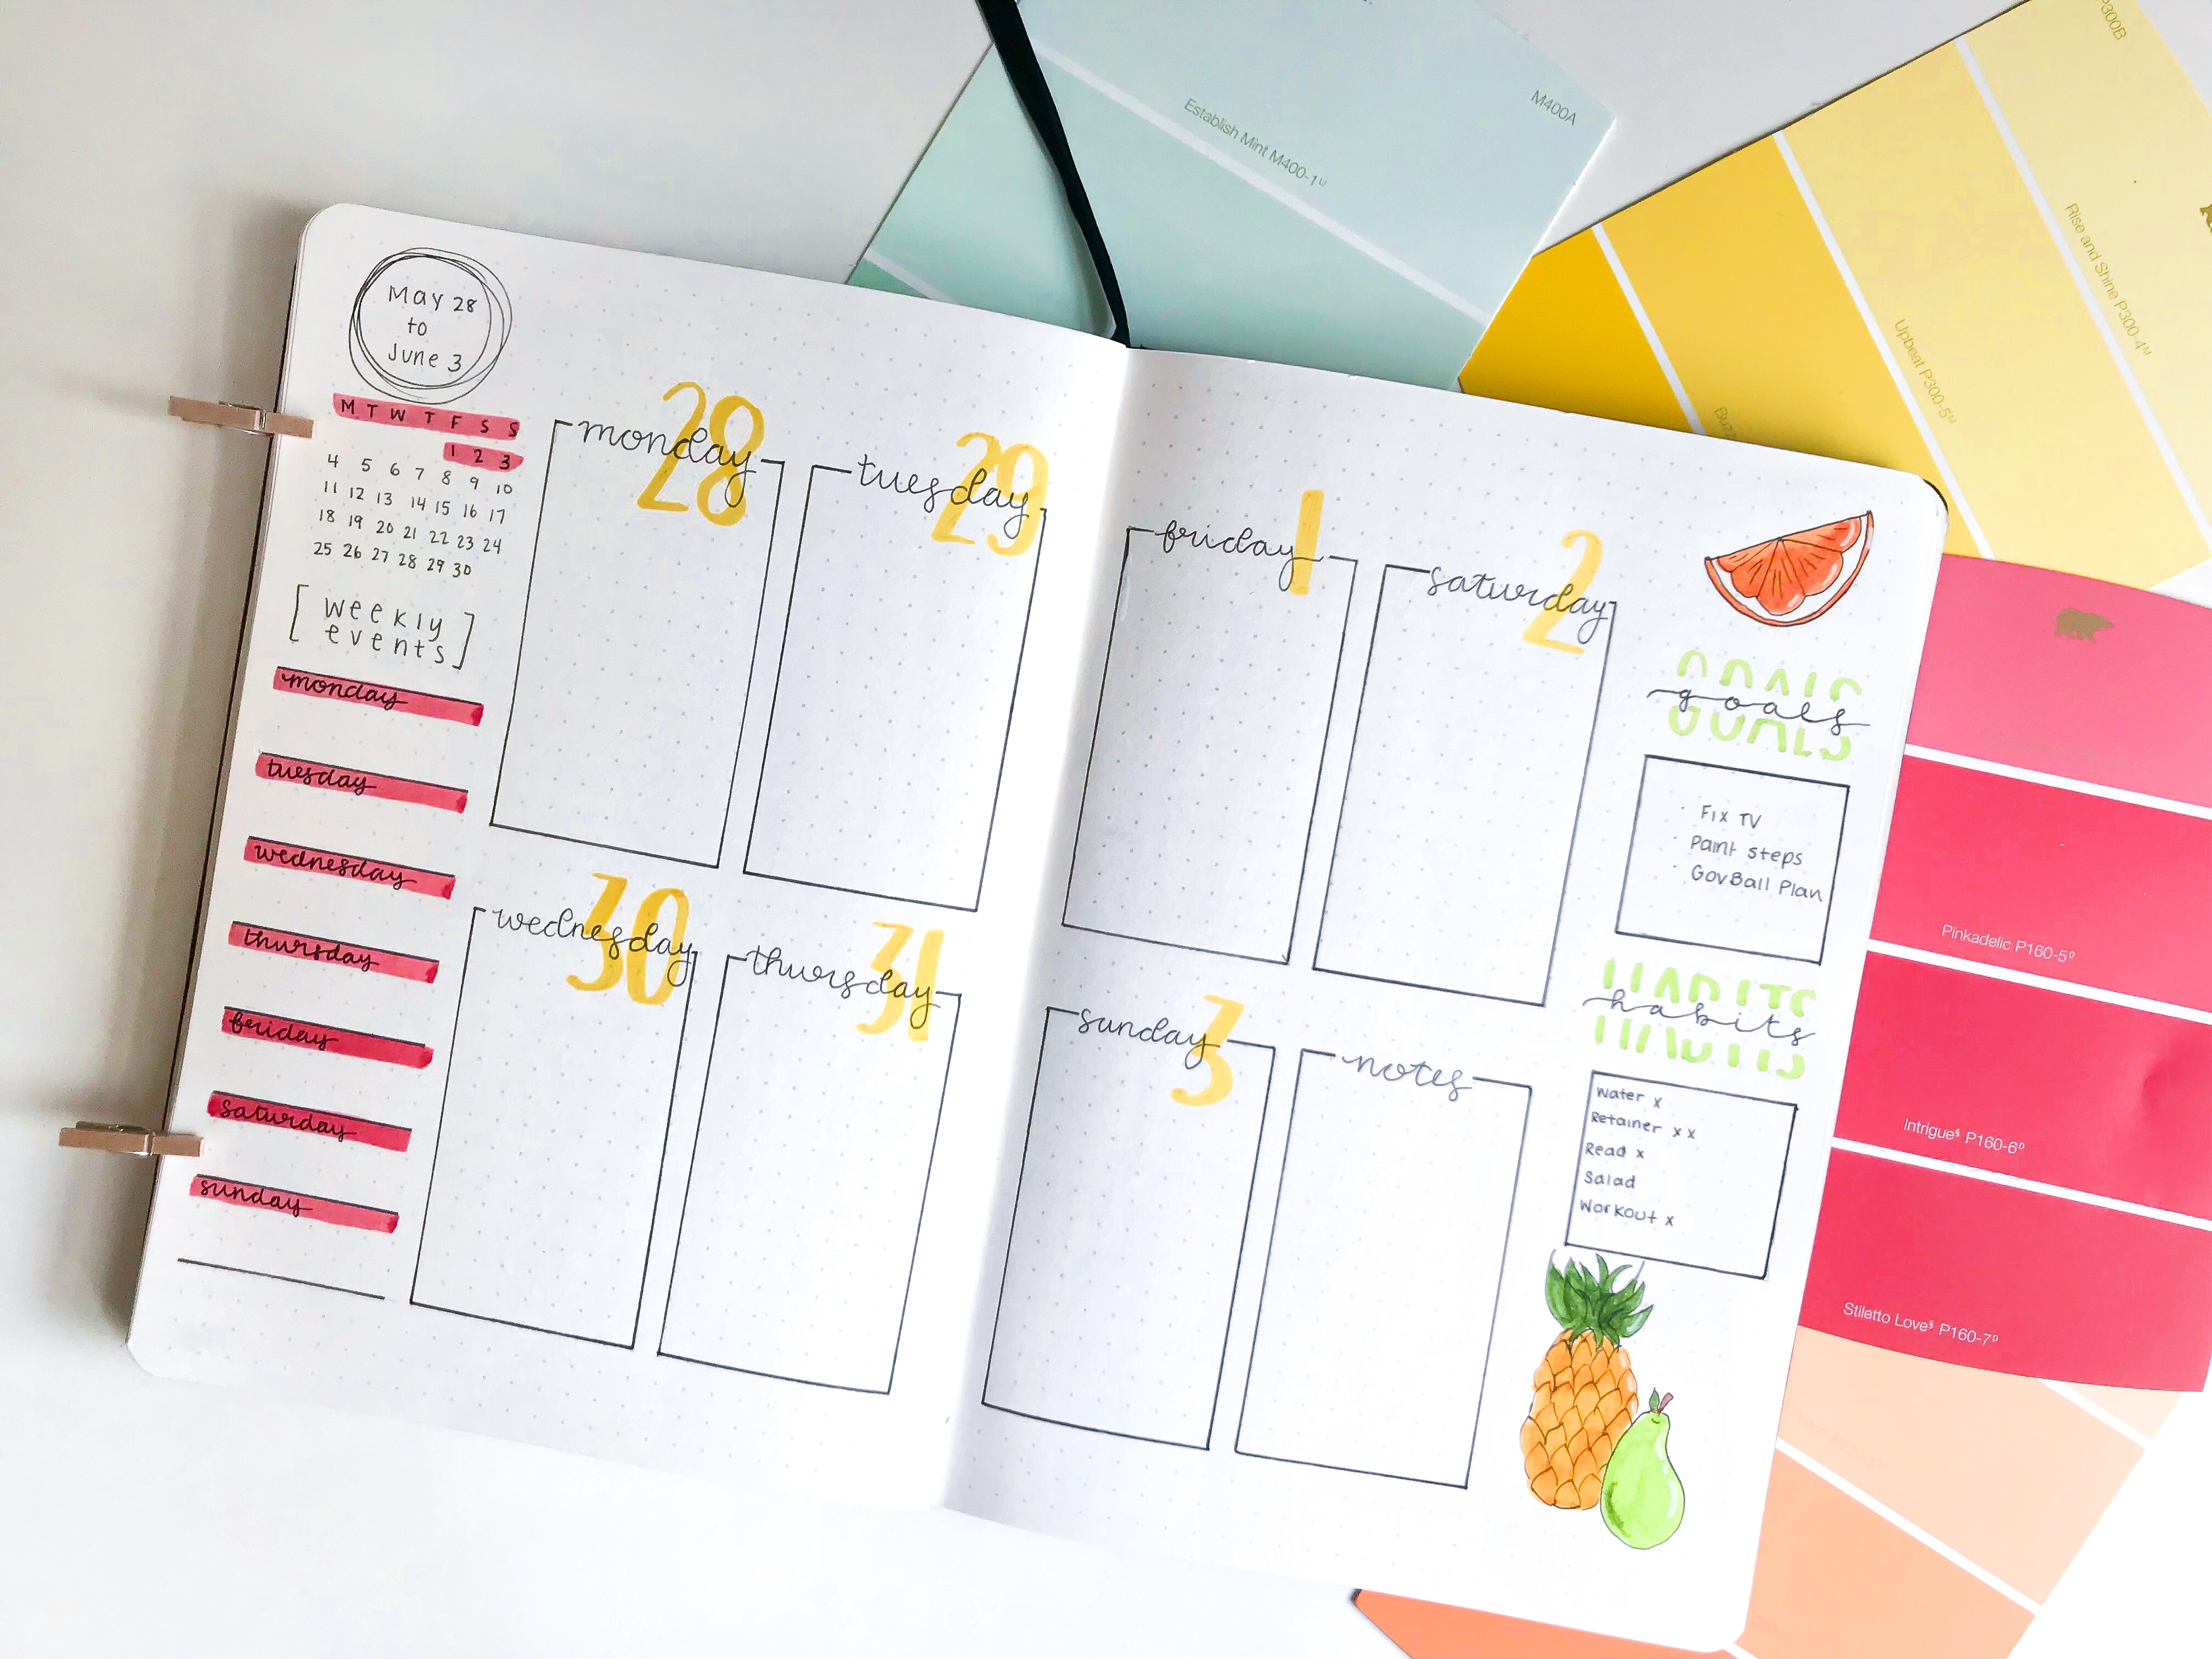 May 28
to
June 3
M T W T F S S
1 2 3
4 5 6 7 8 9 10
11 12 13 14 15 16 17
18 19 20 21 22 23 24
25 26 27 28 29 30
[weekly
events]
monday
tuesday
wednesday
thursday
friday
saturday
sunday
monday 28
tuesday 29
wednesday 30
thursday 31
friday 1
saturday 2
sunday 3
notes
GOALS
goals
· Fix TV
· Paint steps
· GovBall Plan
HABITS
habits
Water x
Retainer x x
Read x
Salad
Workout x
M400A
Establish Mint M400-1ᵁ
P300B
Rise and Shine P300-4ᴹ
Upbeat P300-5ᴹ
Pinkadelic P160-5ᴰ
Intrigue§ P160-6ᴰ
Stiletto Love§ P160-7ᴰ